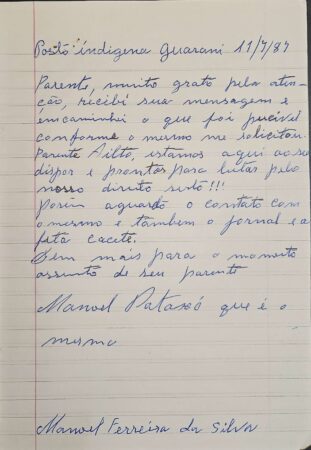 Posto indigena Guarani 11/7/87
Parente, muito grato pela aten-
ção, recibi sua mensagem e
encaminhei o que foi pucivil
conforme o mesmo me solicitou.
Parente Ailto, estamos aqui ao seu
dispor e prontos para lutar pelo
nosso direito serto!!!
Porém aguardo o contato com
o mesmo e tambem o jornal e a
fita cacete.
Sem mais para o momento
assunto de seu parente
Manoel Pataxó que é o
mesmo
Manoel Ferreira da Silva